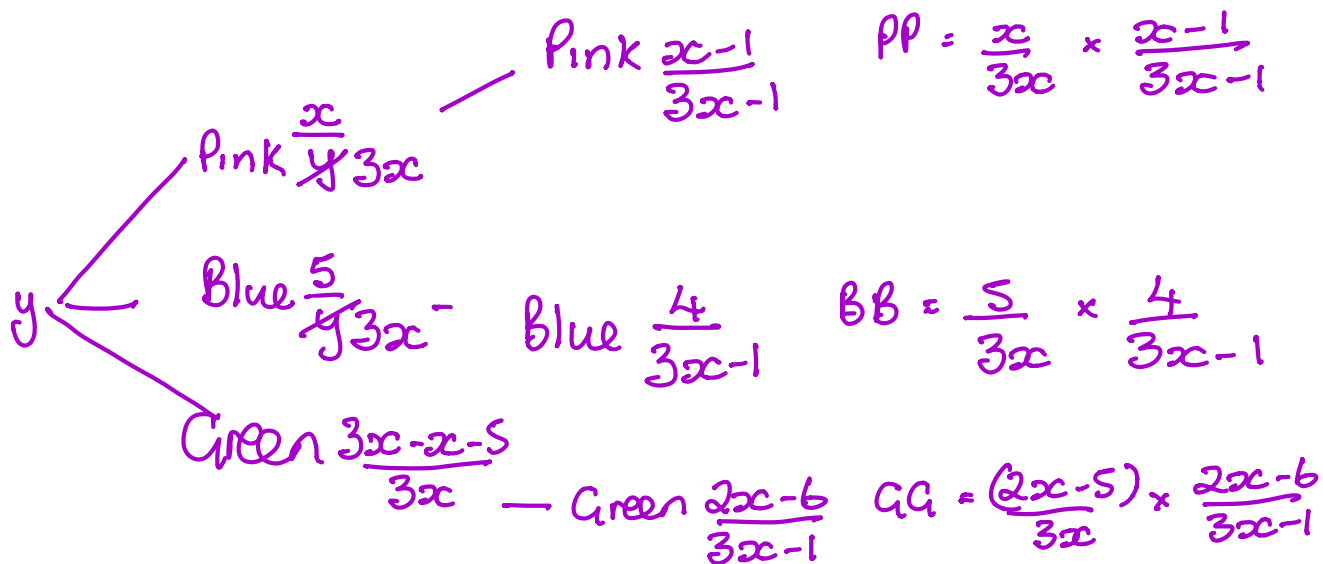 Pink x-1/3x-1 PP = x/3x × x-1/3x-1
Pink x/y 3x
y Blue 5/y 3x - Blue 4/3x-1 BB = 5/3x × 4/3x-1
Green 3x-x-5/3x - Green 2x-6/3x-1 GG = (2x-5)/3x × 2x-6/3x-1